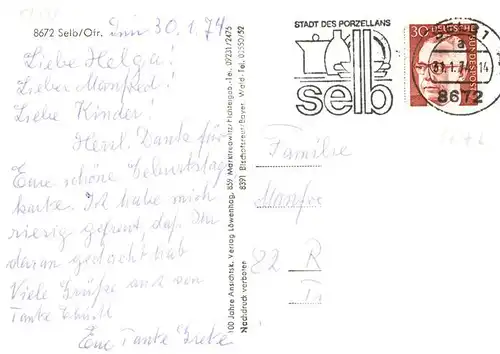 8672 Selb/Ofr.
den 30.1.74
Liebe Helga!
Lieber Manfred!
Liebe Kinder!
Herzl. Dank für
Eure schöne Geburtstags
karte. Ich habe mich
riesig gefreut, daß Ihr
daran gedacht hab
Viele Grüße auch von
Tante
Eure Tante Grete
100 Jahre Ansichtsk. Verlag Löwenhag, 859 Marktredwitz/Fichtelgeb. Tel. 09231/2475
8391 Bischofsreut/Bayer. Wald - Tel. 00550/52
Nachdruck verboten
STADT DES PORZELLANS
selb
30
DEUTSCHE BUNDESPOST
1
a
31.1.74-14
8672
Familie
Manfre
82 R